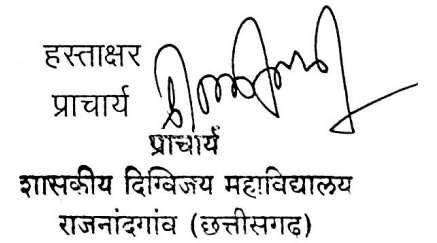 हस्ताक्षर
प्राचार्य
प्राचार्य
शासकीय दिग्विजय महाविद्यालय
राजनांदगांव (छत्तीसगढ़)